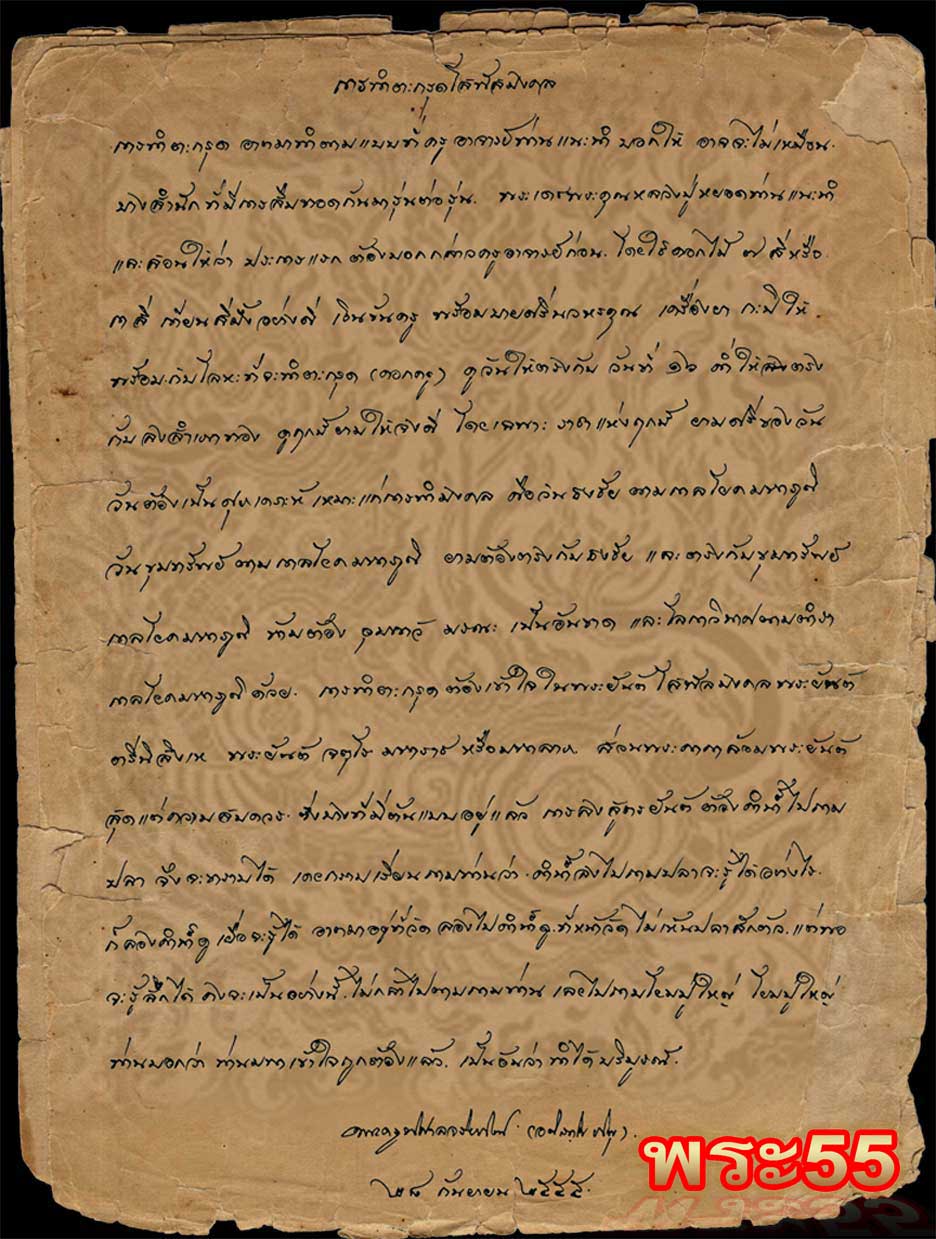 การทำตะกรุดโสฬสมงคล
การทำตะกรุด อาตมาทำตามแบบที่ครูอาจารย์ท่านแนะนำ บอกให้ อาจจะไม่เหมือน
บางสำนัก ที่มีการสืบทอดกันมารุ่นต่อรุ่น. พระเดชพระคุณหลวงปู่หยอดท่านแนะนำ
และสอนให้ว่า ประการแรก ต้องบอกกล่าวครูอาจารย์ก่อน. โดยใช้ดอกไม้ ๗ สี หรือ
๓ สี เทียนสีผึ้งอย่างดี เงินขันครู พร้อมบายศรี เครื่องยา กะบีให้
พร้อมกับโลหะที่จะทำตะกรุด (ดอกครู) ดูวันให้ตรงกับ วันที่ ๑๖ ค่ำ ให้ตรง
กับ ดูฤกษ์ยามให้จงดี โดยเฉพาะ ราชาแห่งฤกษ์ ยามศรีของวัน
วันต้องเป็นศุภเคราะห์ เหมาะแก่การทำมงคล คือวันธงชัย ตามกาลโยคมหาฤกษ์
วันขุมทรัพย์ ตามกาลโยคมหาฤกษ์ ยามต้องตรงกับธงชัย และตรงกับขุมทรัพย์
กาลโยคมหาฤกษ์ ห้ามต้อง เป็นอันขาด และโลกาวินาศตามตำรา
กาลโยคมหาฤกษ์ด้วย. การทำตะกรุดต้องเข้าใจในพระยันต์โสฬสมงคล พระยันต์
ตรีนิสิงเห พระยันต์จตุโร มหาราช หรือมหาลาภ ส่วนพระคาถาล้อมพระยันต์
สุดแต่ความสมควร. ซึ่งบางที่มีต้นแบบอยู่แล้ว การลงสูตรยันต์ ต้องดำน้ำไปถาม
ปลา จึงจะทราบได้ เคยกราบเรียนถามท่านว่า. ดำน้ำลงไปถามปลาจะรู้ได้อย่างไร.
ก็ลองดำน้ำดู เผื่อจะรู้ได้ อาตมาอยู่ที่วัด ลองไปดำน้ำดู. ที่หน้าวัด ไม่เห็นปลาสักตัว. แต่พอ
จะรู้สึกได้ คงจะเป็นอย่างนี้. ไม่กล้าไปตามถามท่าน เลยไปถามโยมปู่ใหญ่ โยมปู่ใหญ่
ท่านบอกว่า ท่านมหาเข้าใจถูกต้องแล้ว. เป็นอันว่า ทำได้บริบูรณ์.
๒๘ กันยายน ๒๕๕๕.
พระ55